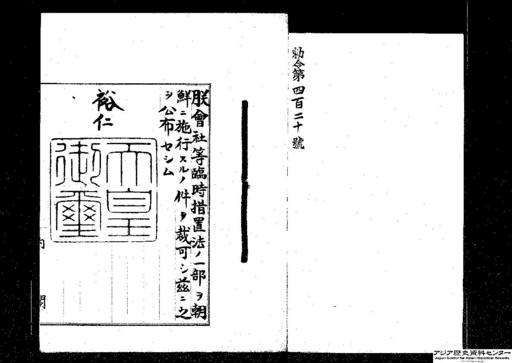 勅令第四百二十號
朕會社等臨時措置法ノ一部ヲ朝
鮮ニ施行スルノ件ヲ裁可シ茲ニ之
ヲ公布セシム
裕仁
天皇
御璽
内閣
アジア歴史資料センター
Japan Center for Asian Historical Records